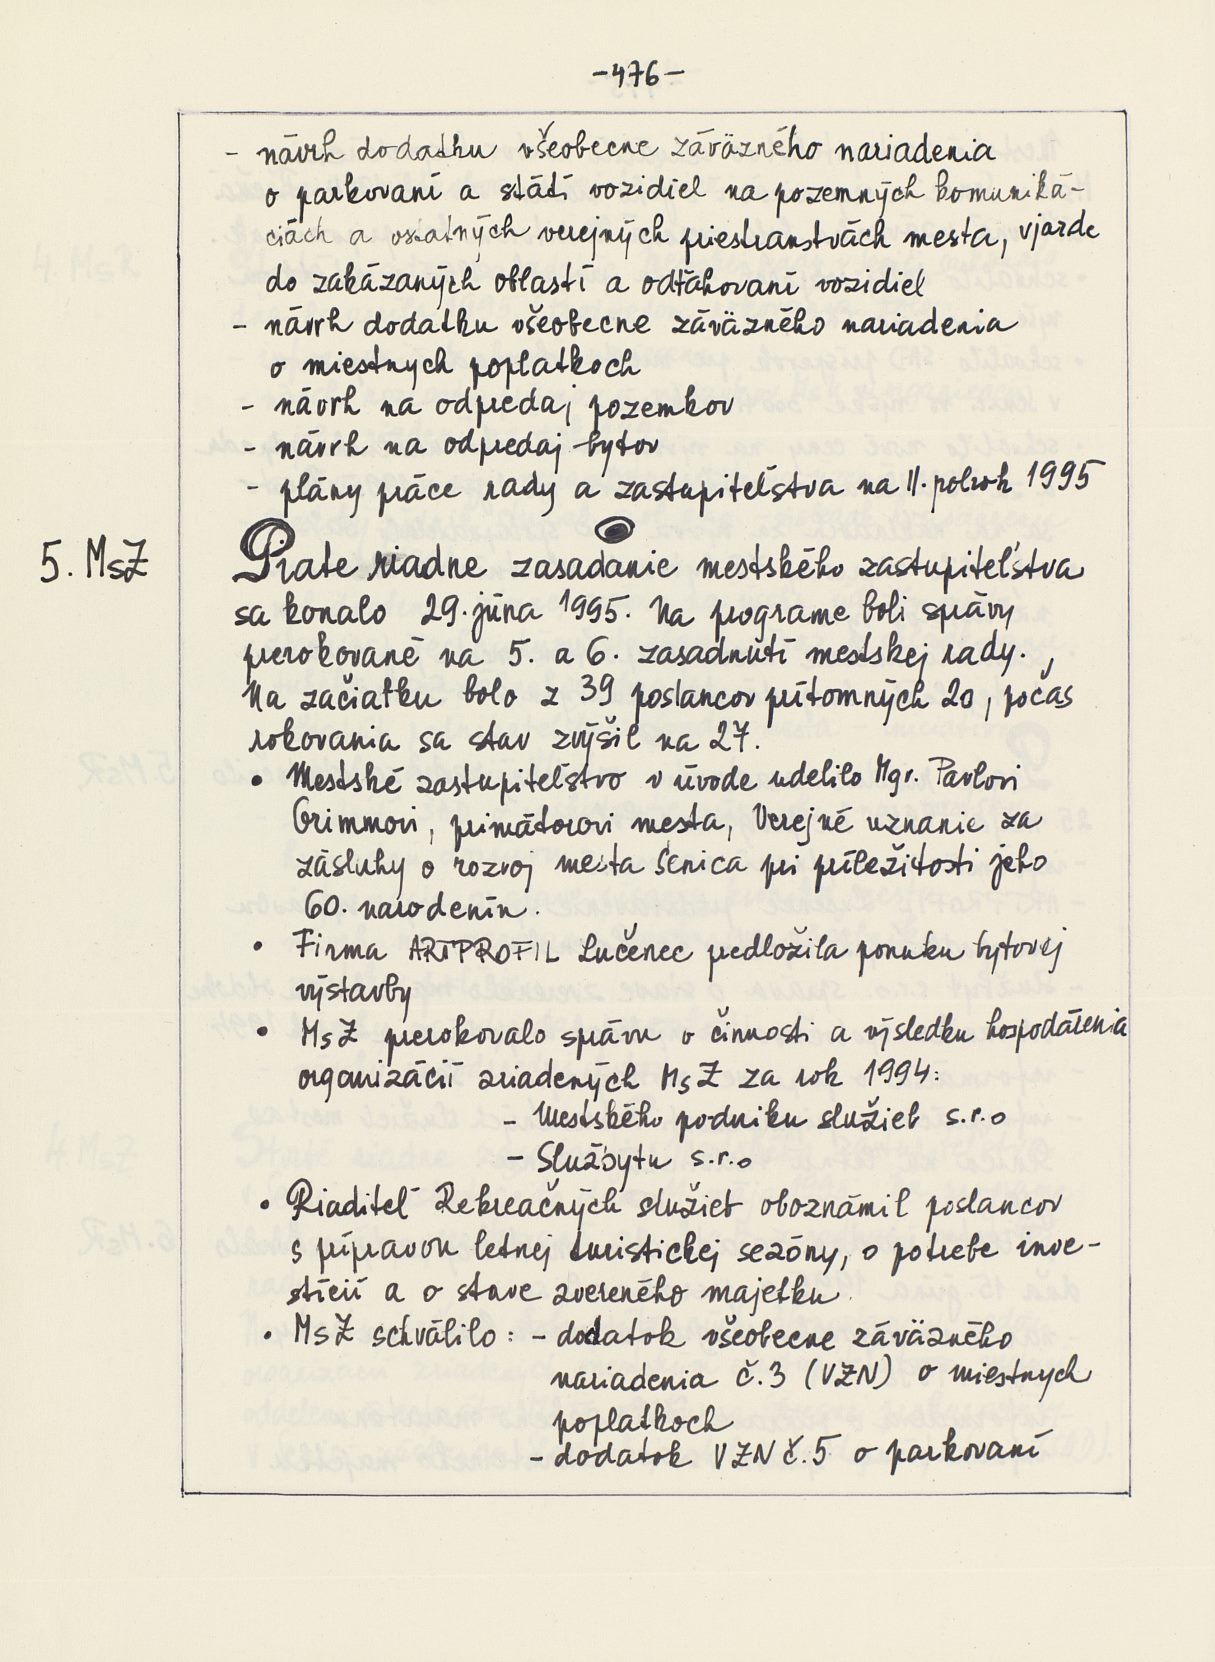 -476-
- návrh dodatku všeobecne záväzného nariadenia
o parkovaní a státí vozidiel na pozemných komuniká-
ciách a ostatných verejných priestranstvách mesta, vjazde
do zakázaných oblastí a odťahovaní vozidiel
- návrh dodatku všeobecne záväzného nariadenia
o miestnych poplatkoch
- návrh na odpredaj pozemkov
- návrh na odpredaj bytov
- plány práce rady a zastupiteľstva na II. polrok 1995
5. MsZ
Piate riadne zasadanie mestského zastupiteľstva
sa konalo 29. júna 1995. Na programe boli správy
prerokované na 5. a 6. zasadnutí mestskej rady.
Na začiatku bolo z 39 poslancov prítomných 20, počas
rokovania sa stav zvýšil na 27.
• Mestské zastupiteľstvo v úvode udelilo Mgr. Pavlovi
Grimmovi, primátorovi mesta, Verejné uznanie za
zásluhy o rozvoj mesta Senica pri príležitosti jeho
60. narodenín.
• Firma ARTPROFIL Lučenec predložila ponuku bytovej
výstavby
• MsZ prerokovalo správu o činnosti a výsledku hospodárenia
organizácií zriadených MsZ za rok 1994:
- Mestského podniku služieb s.r.o
- Službytu s.r.o
• Riaditeľ Rekreačných služieb oboznámil poslancov
s prípravou letnej turistickej sezóny, o potrebe inve-
stícií a o stave zvereného majetku.
• MsZ schválilo: - dodatok všeobecne záväzného
nariadenia č.3 (VZN) o miestnych
poplatkoch
- dodatok VZN č.5 o parkovaní